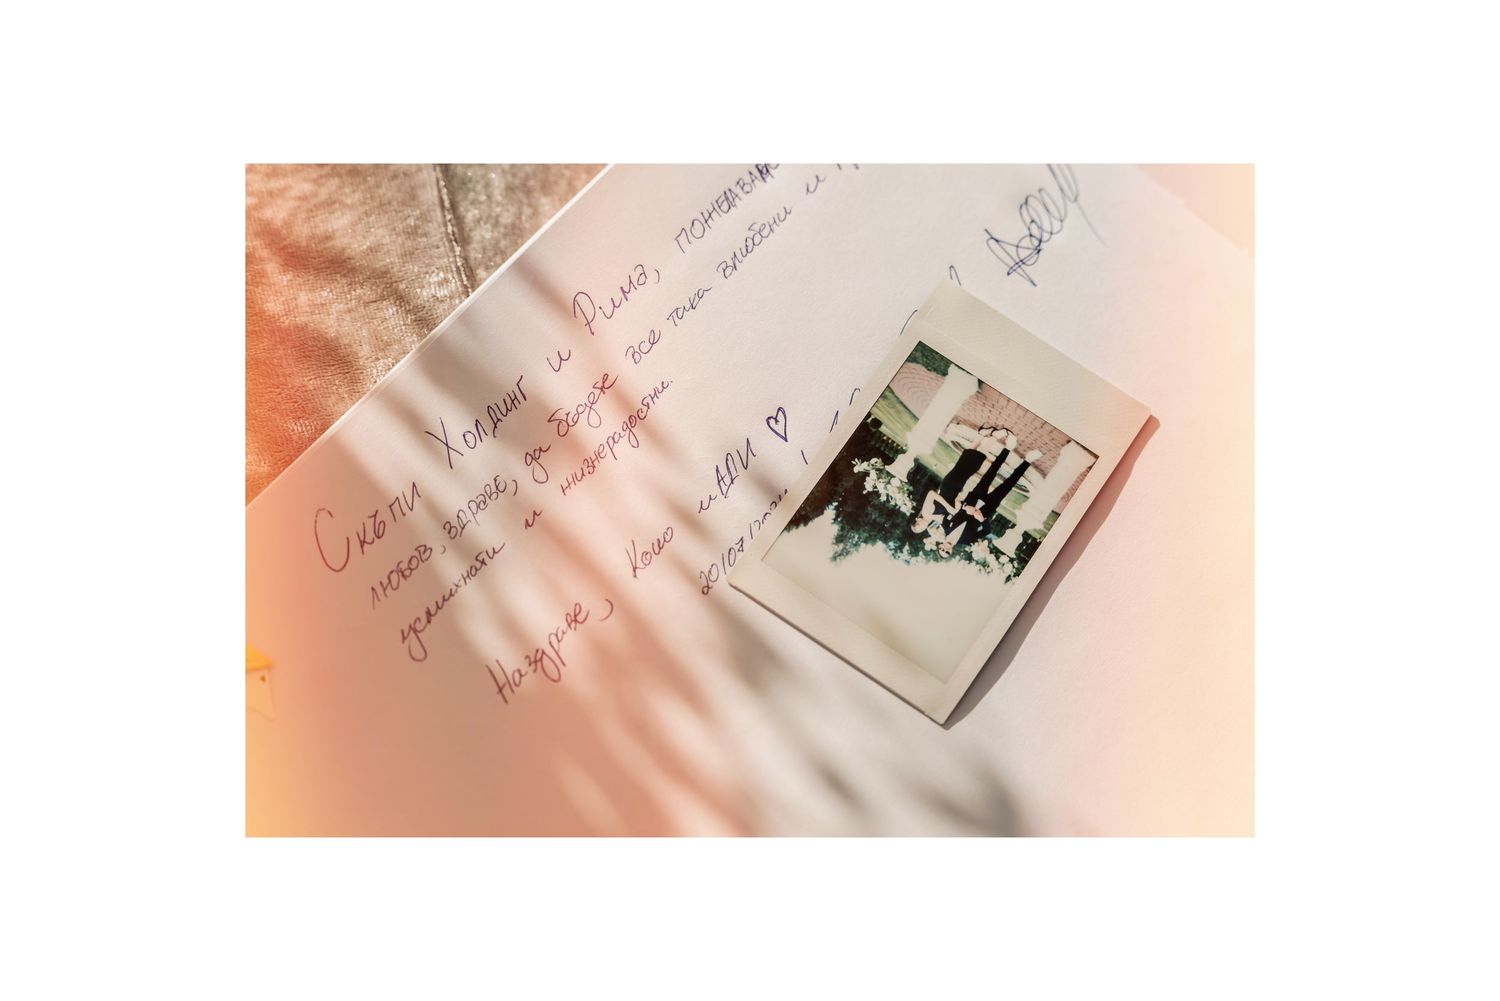 Скъпи Холдинг и Рима, пожелавам
любов, здраве, да бъдете все така влюбени и
усмихнати и жизнерадостни.
Наздраве, Коцо и Ади ♡
20/07/2024